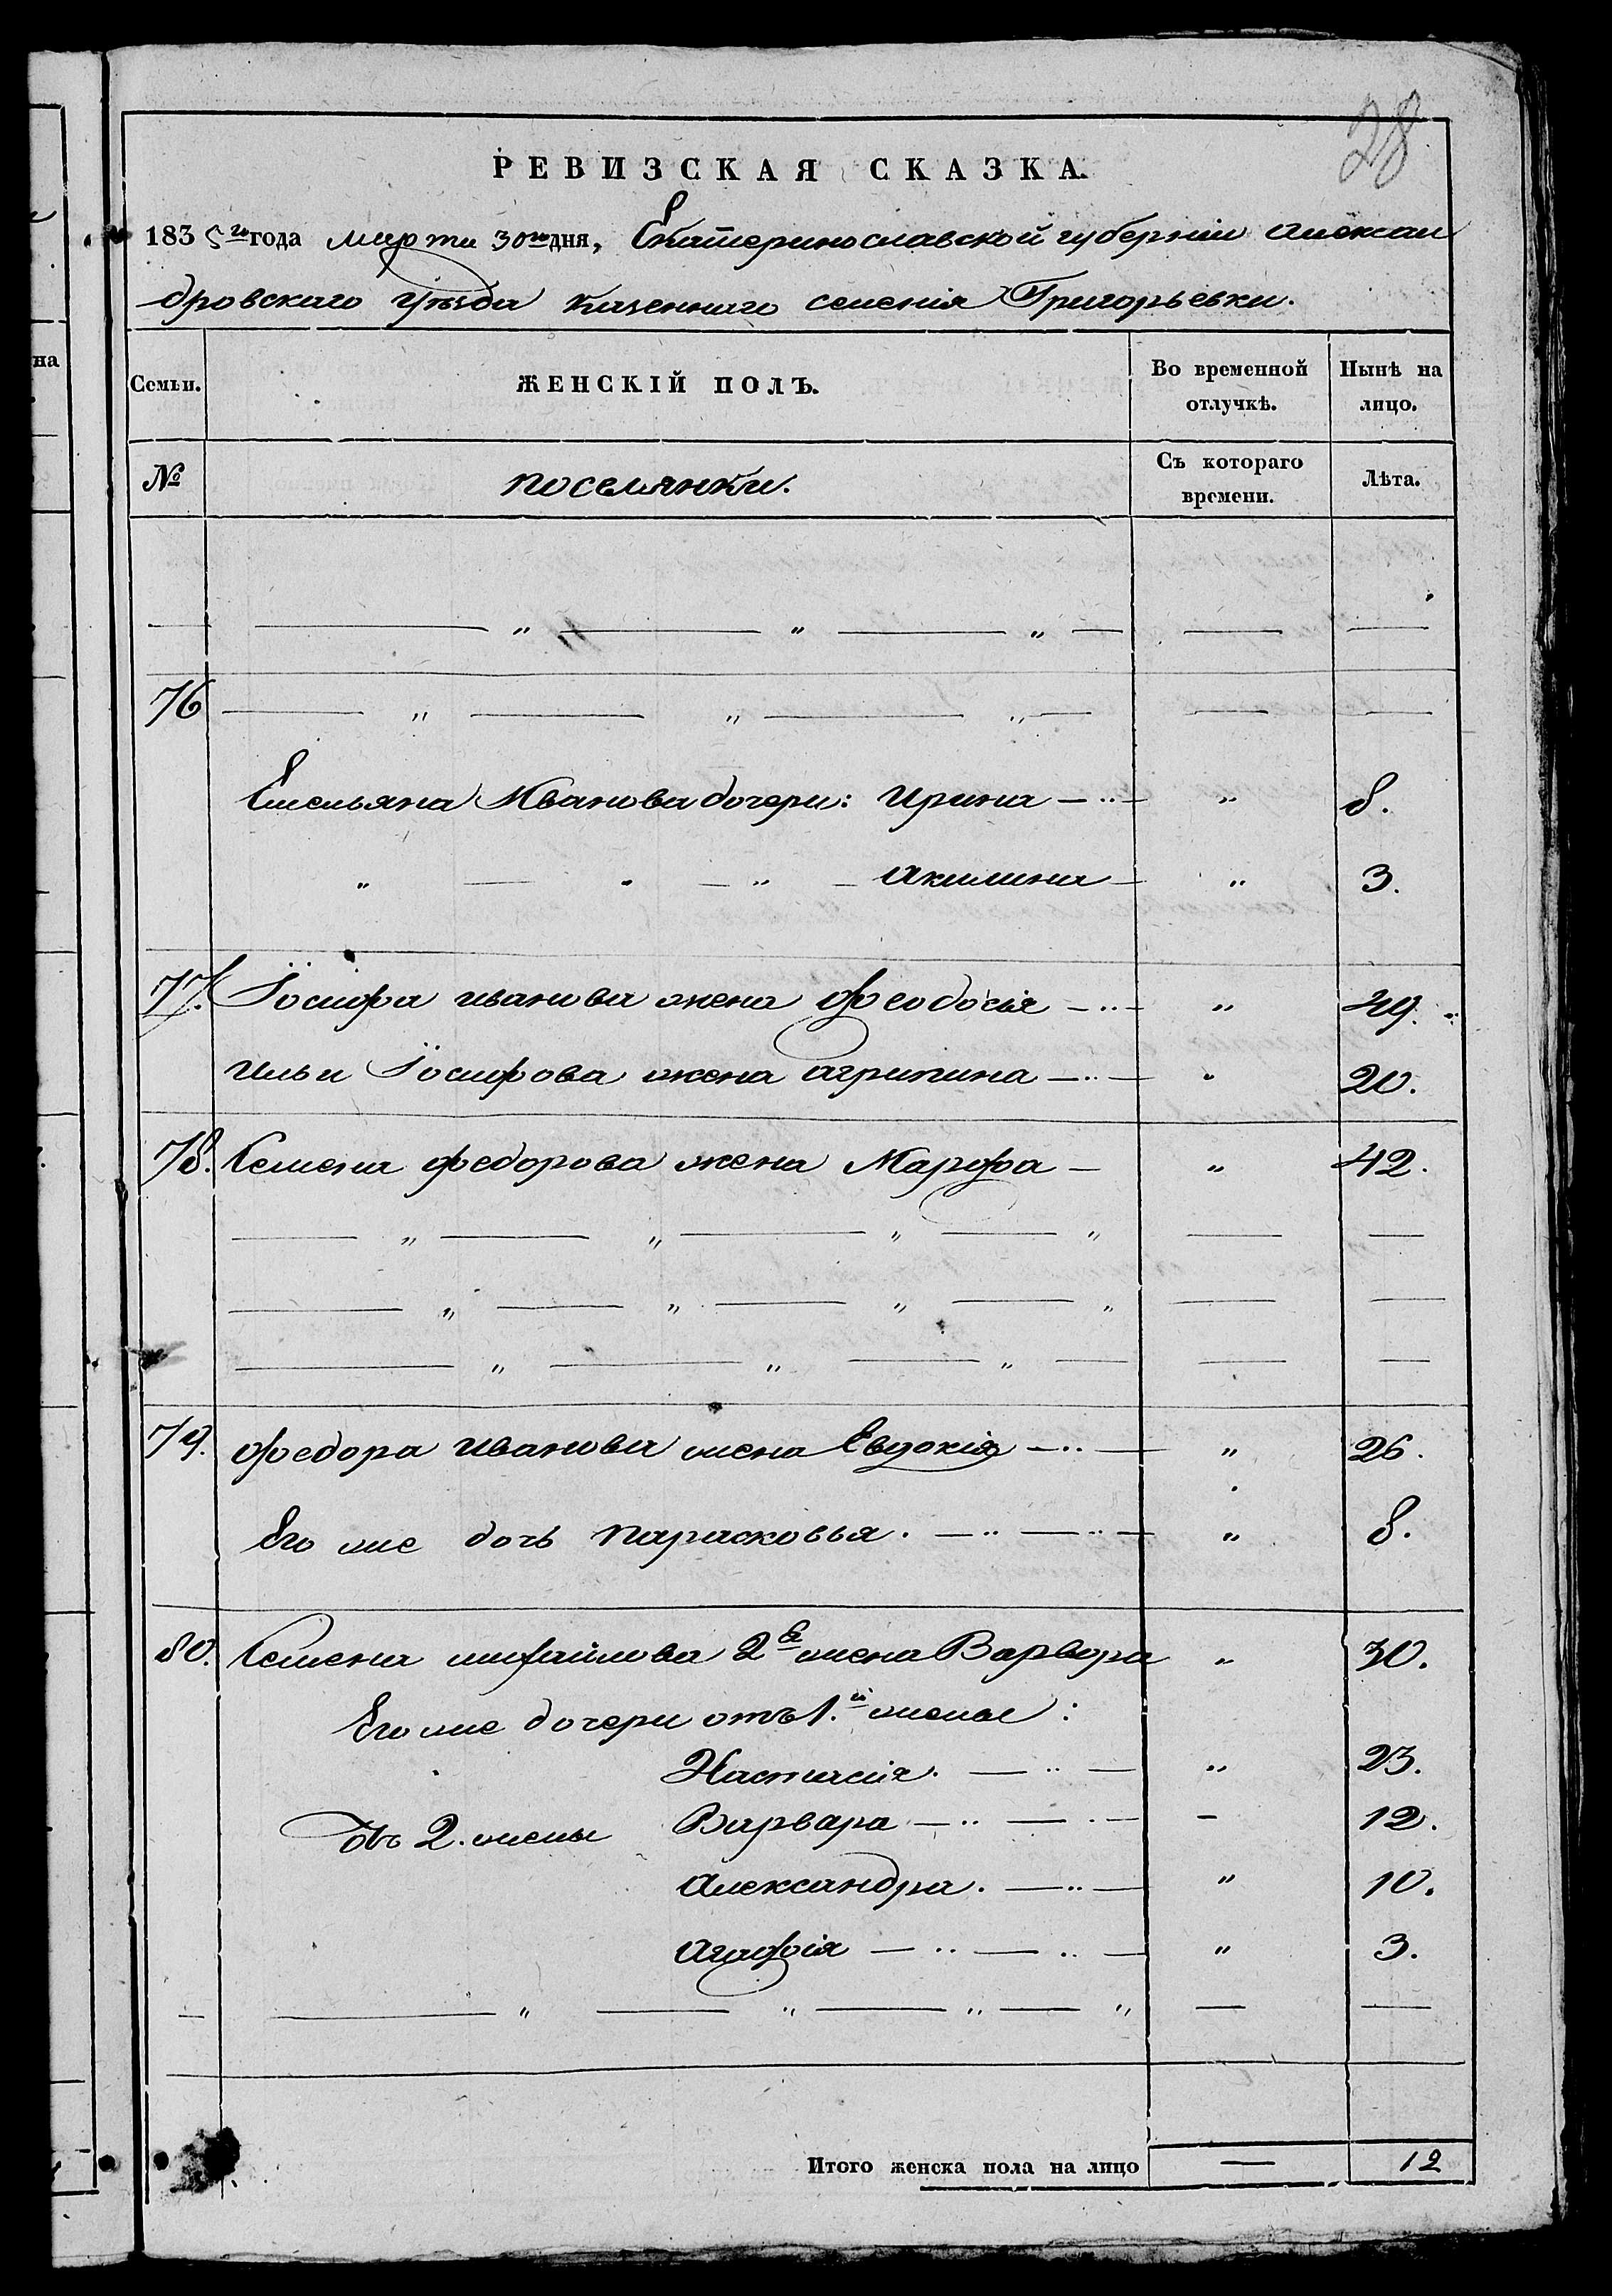 28
РЕВИЗСКАЯ СКАЗКА.
1835го года марта 30го дня, Екатеринославской губерніи Алексан
дровскаго уѣзда казеннаго селенія Григорьевки.
Семьи. ЖЕНСКІЙ ПОЛЪ. Во временной отлучкѣ. Нынѣ на лицо.
№ поселянки. Съ котораго времени. Лѣта.
— „ — „ — „ — — —
76 — „ — „ — „ — — —
Емельяна Иванова дочери: Ирина — „ 8.
„ — „ — „ — Акилина — „ 3.
77. Іосифа иванова жена Феодосія — „ 49.
Ильи Іосифова жена агрипина — „ 20.
78. Семена федорова жена Марфа — „ 42.
— „ — „ — „ — „ — —
— „ — „ — „ — „ — —
— „ — „ — „ — — —
79. Федора иванова жена Евдокія — „ 26.
Его же дочь параскевья. — „ 8.
80. Семена михайлова 2я жена Варвора „ 30.
Его же дочери отъ 1.й жены:
Настасія. — „ 23.
Отъ 2. жены Варвара — - 12.
Александра. — „ 10.
Агафія — „ 3.
— — „ — „ — „ — „ — —
Итого женска пола на лицо — 12